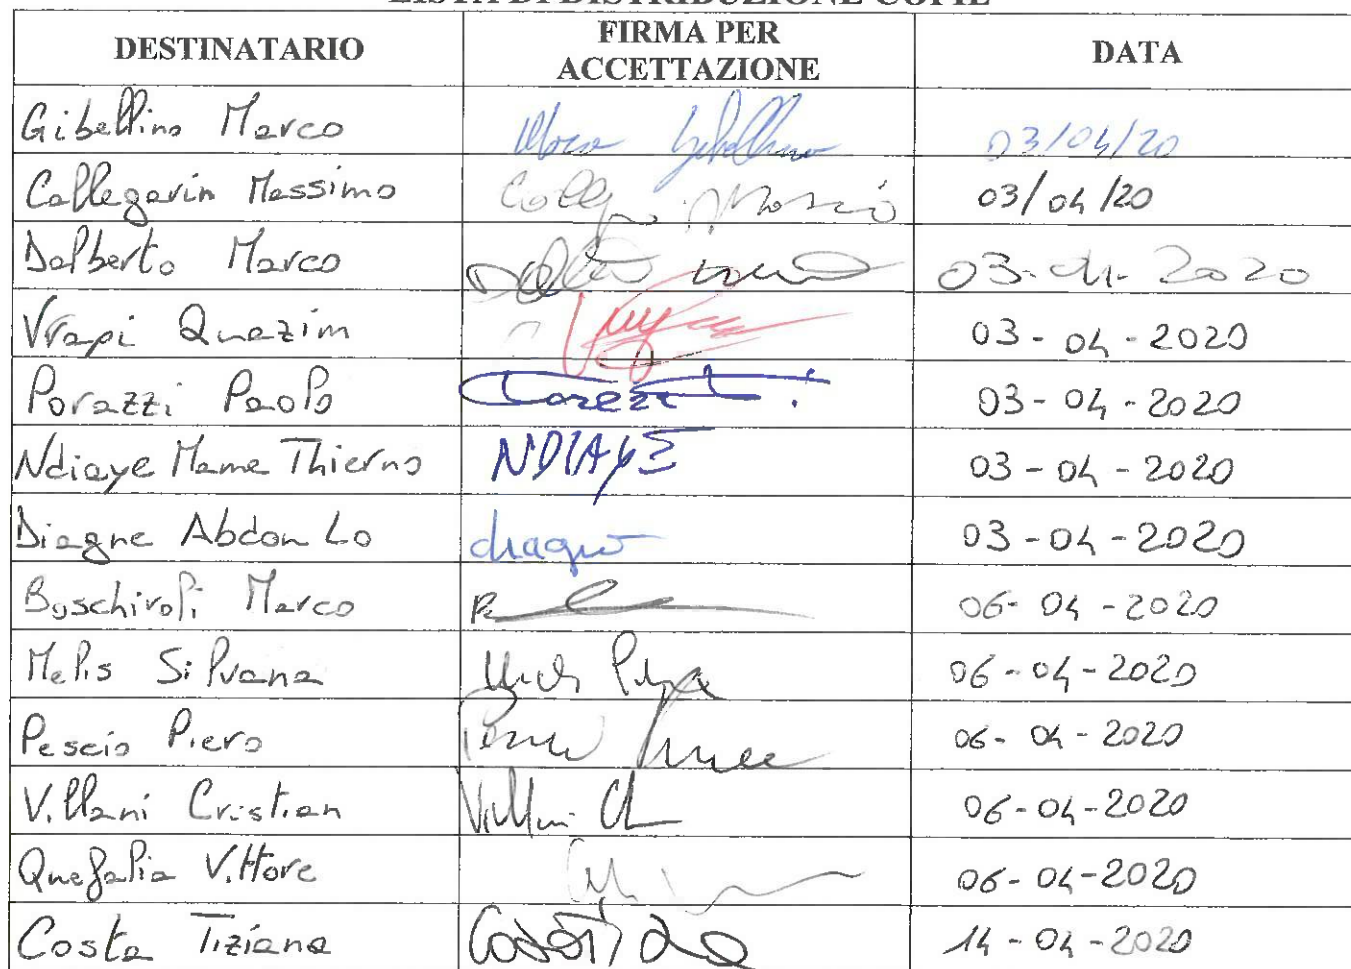 LISTA DI DISTRIBUZIONE COPIE
DESTINATARIO FIRMA PER ACCETTAZIONE DATA
Gibellino Marco 03/04/20
Callegarin Massimo 03/04/20
Dalberto Marco 03-04-2020
Vrapi Quazim 03-04-2020
Porazzi Paolo 03-04-2020
Ndiaye Mame Thierno NDIAYE 03-04-2020
Diagne Abdou Lo diagne 03-04-2020
Buschiroli Marco 06-04-2020
Melis Silvana 06-04-2020
Pescio Piero 06-04-2020
Villani Cristian Villani 06-04-2020
Vittore 06-04-2020
Costa Tiziana 14-04-2020